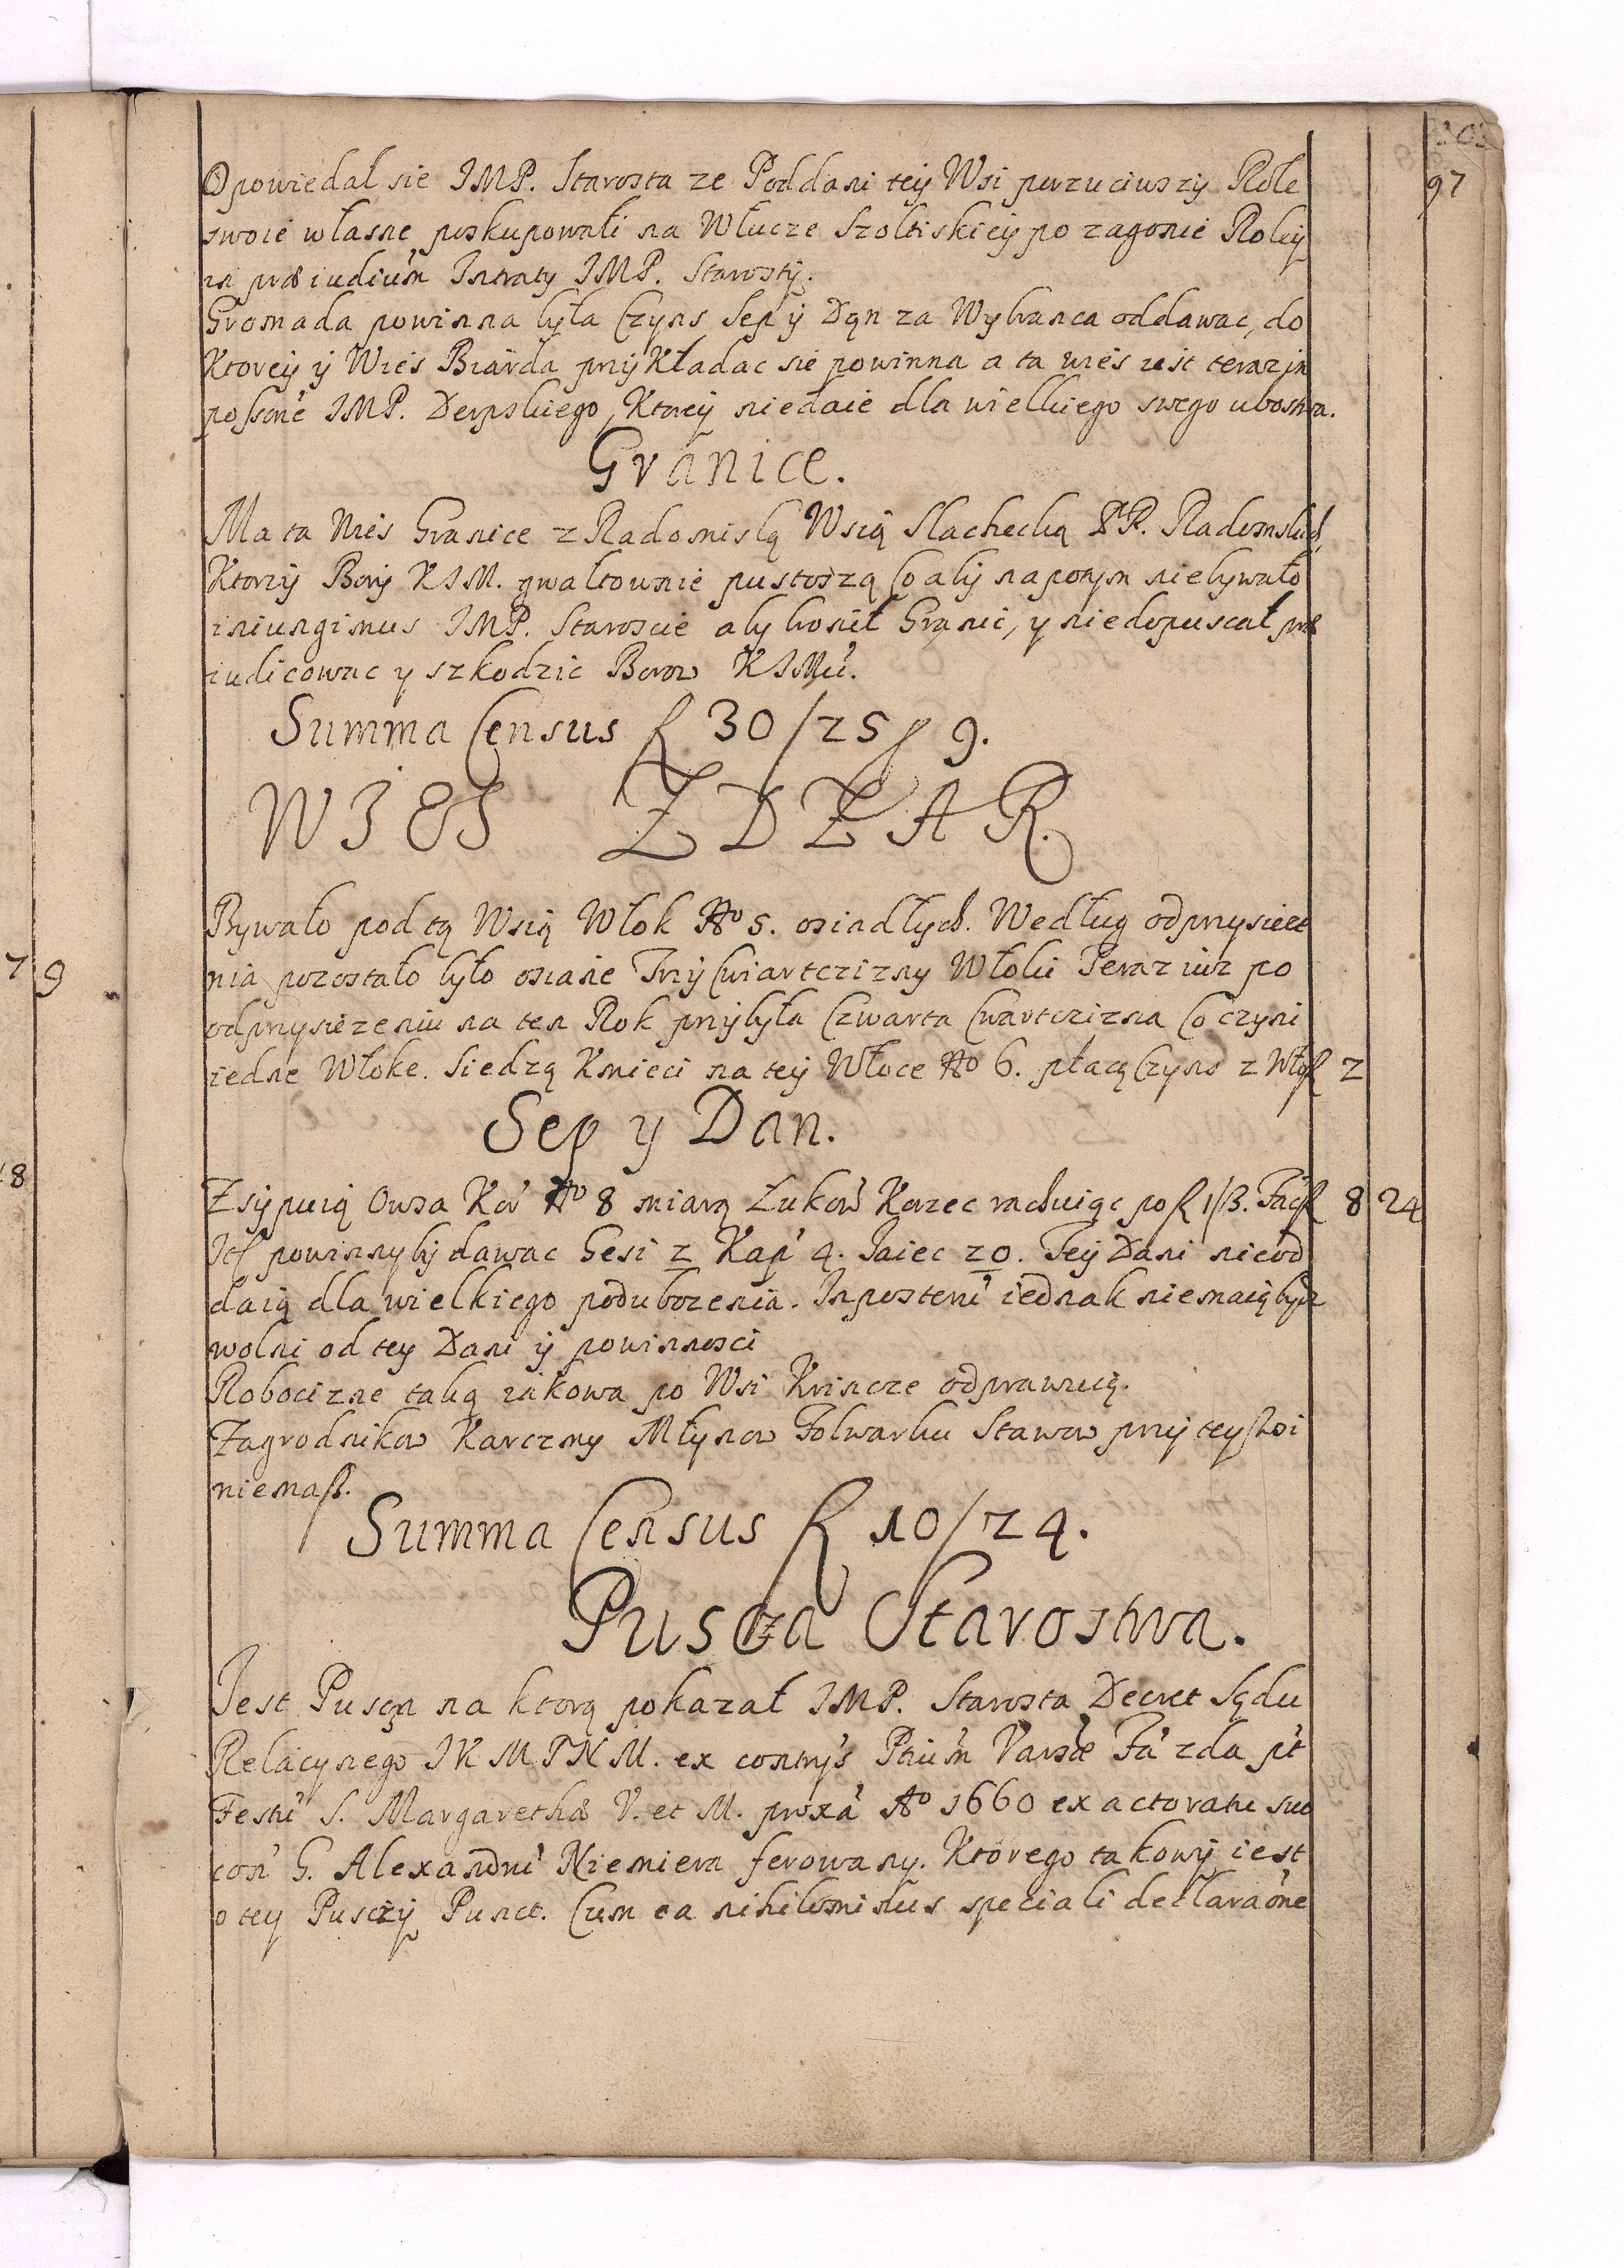 97
Opowiedał sie JMP. Starosta ze Poddani tey Wsi porzuciwszÿ Role
swoie własne poskupowali na Włucze Szoltiskieÿ po zagonie Roleÿ
in præiudium Intraty JMP. Starostÿ.
Gromada powinna była Czyns Sep ÿ Dan za Wybranca oddawac, do
Ktoreÿ ÿ Wies Biarda prziKładac sie powinna a ta wies iest teraz in
possone JMP. Derpskiego, Ktoreÿ niedaie dla wielkiego swego ubostwa.
Granice.
Ma ta Wies Granice z Radomislą Wsią Slachecką PP. Radomskich,
Ktorzÿ Borÿ KJM. gwałtownie pustoszą Co abÿ napotym niebywało
iniungimus JMP. Staroscie aby bronił Granic, y niedopuscał præ
iudicowac y szkodzic Borow KJMci.
Summa Census f 30/25 ß 9.
WJES ZDZAR.
Bywało pod tą Wsią Włok No 5. osiadłych. Według odprzysieze
7 9
nia pozostało było osiane Trzÿ Cwiartczizny Włoki Teraz iuz po
odprzysiezeniu na ten Rok przÿbyła Czwarta Cwartczizna Co czyni
iedne Włoke. Siedzą Kmieci na teÿ Włoce No 6. płacą Czyns z Wło f 2
Sep y Dan.
8
Zsÿpuią Owsa Kor No 8 miarą Lukow Korzec rachuiąc po f 1/3. Fac f 8 24
It powinnybÿ dawac Gesi 2 Kap 4. Jaiec 20. Teÿ Dani nieod
daią dla wielkiego podubozenia. In posterum iednak niemaią bydz
wolni od tey Dani ÿ powinnosci
Robocizne taką iakowa po Wsi Krincze odprawuią.
Zagrodnikow Karczmy Młynow Folwarku Stawow przÿ tey Wsi
niemasz.
Summa Census f 10/24.
Puscza Starostwa.
Jest Puscza na ktorą pokazał JMP. Starosta Decret Sądu
Relacynego JK M P N M. ex contrys Ptium Varsæ Fa zda pt
Festu S. Margarethæ V. et M. proxa Ao 1660 ex actoratu suo
con G. Alexandru Niemiera ferowany. Ktorego takowÿ iest
o tey Pusczÿ Punct. Cum ea nihilominus speciali declaraone